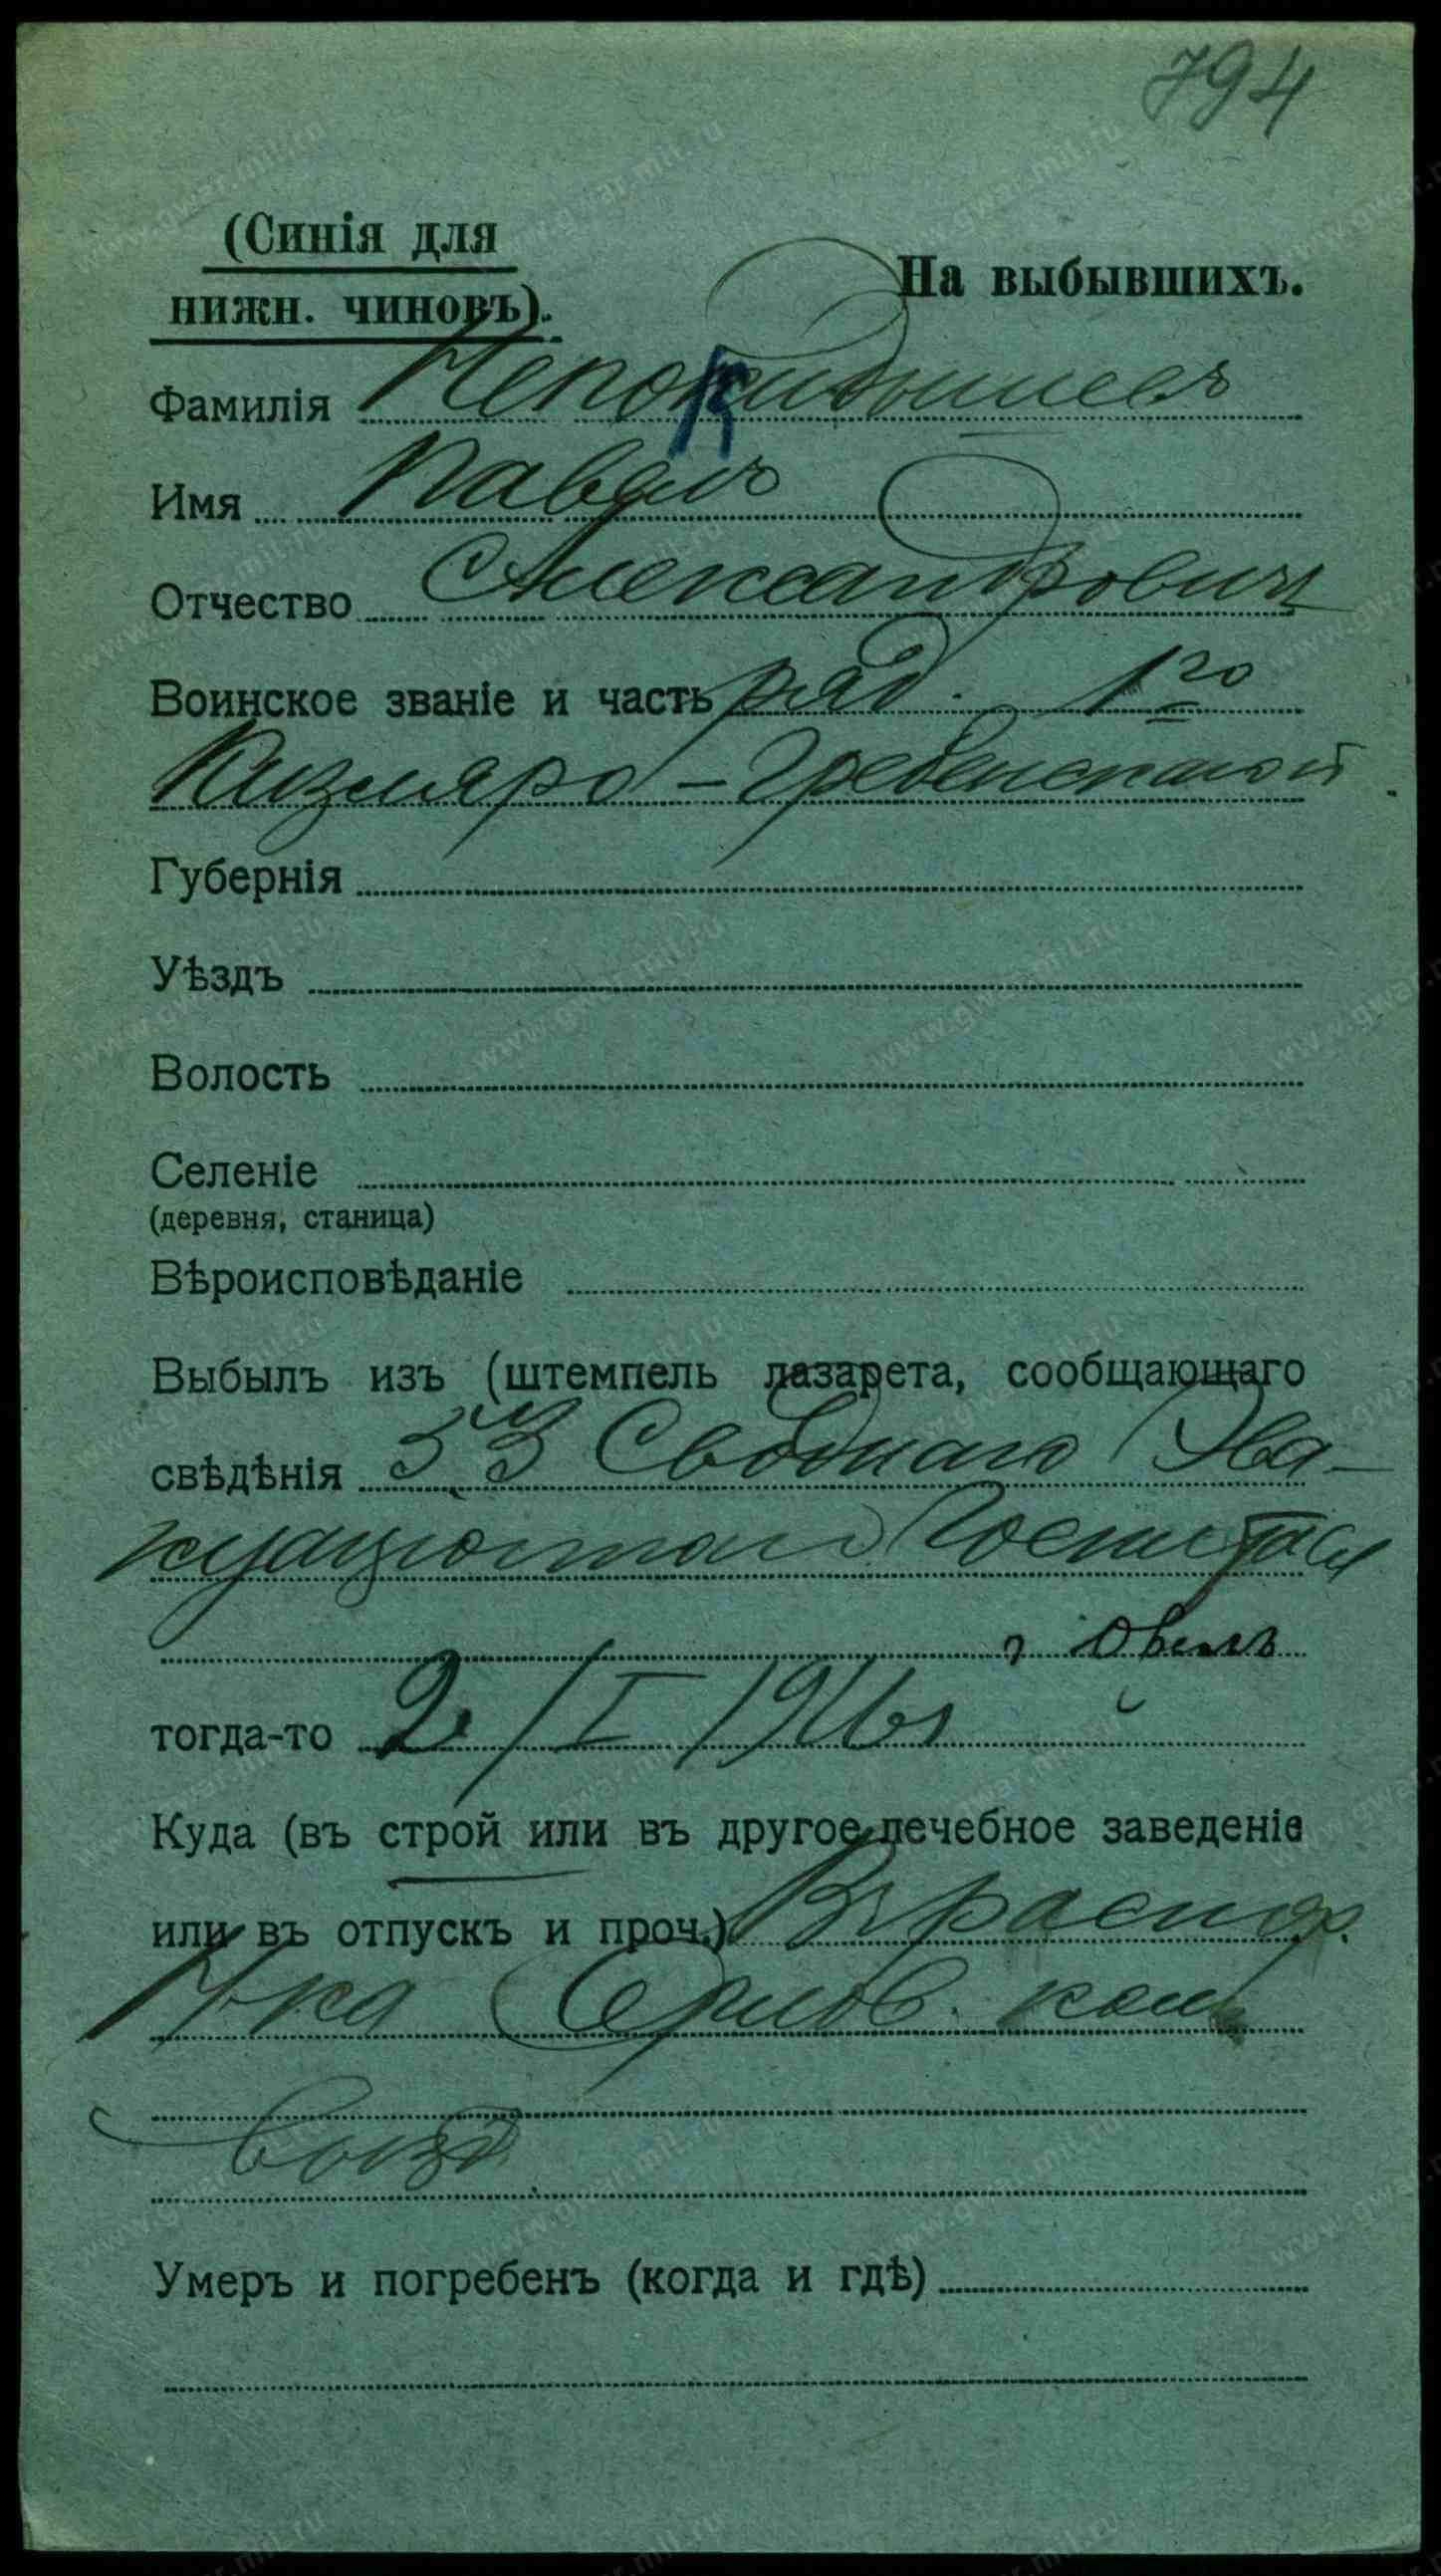 794
(Синія для
нижн. чиновъ).
На выбывшихъ.
Фамилія
Имя Павелъ
Отчество Александрович
Воинское званіе и часть ряд. 1го
Кизляро-Гребенской
Губернія
Уѣздъ
Волость
Селеніе
(деревня, станица)
Вѣроисповѣданіе
Выбылъ изъ (штемпель лазарета, сообщающаго
свѣдѣнія 53 Сводного Эва-
куаціоннаго Госпиталя
г Орелъ
тогда-то 2/I 1916г
Куда (въ строй или въ другое лечебное заведеніе
или въ отпускъ и проч.) В распор.
Н-ка Орлов. ком
Умеръ и погребенъ (когда и гдѣ)